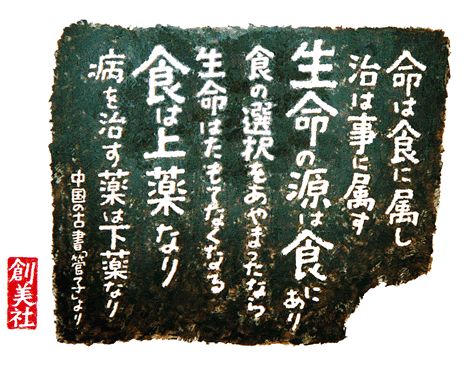 命は食に属し
治は事に属す
生命の源は食にあり
食の選択をあやまったなら
生命はたもてなくなる
食は上薬なり
病を治す薬は下薬なり
中国の古書「管子」より
創美社